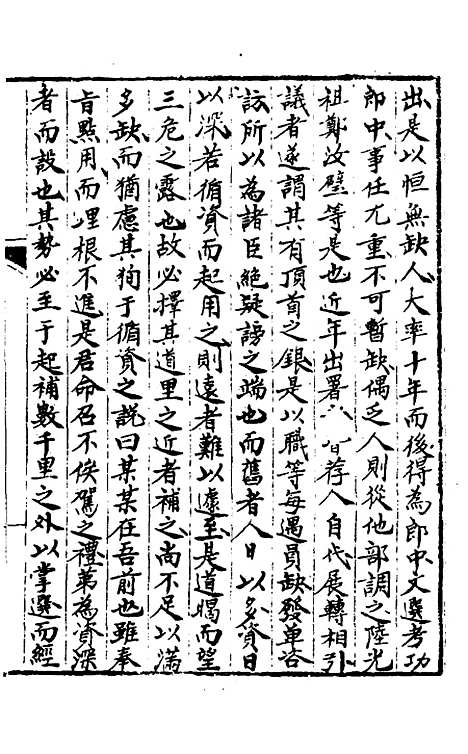 出是以恒無缺人大率十年而後得為郎中文選考功
郎中事任尤重不可暫缺偶乏人則從他部調之陸光
祖鄭汝璧等是也近年出署八皆荐人自代展轉相引
議者遂謂其有頂首之銀是以職等每遇員缺發单咨
訪所以為諸臣絕疑謗之端也而舊者人日以多資日
以深若循資而起用之則遠者難以遽至是道暍而望
三危之露也故必擇其道里之近者補之尚不足以滿
多缺而猶慮其狗于循資之説曰某某在吾前也雖奉
旨點用而埋根不進是君命召不俟駕之禮第為資深
者而設也其勢必至于起補數千里之外以掌選而經